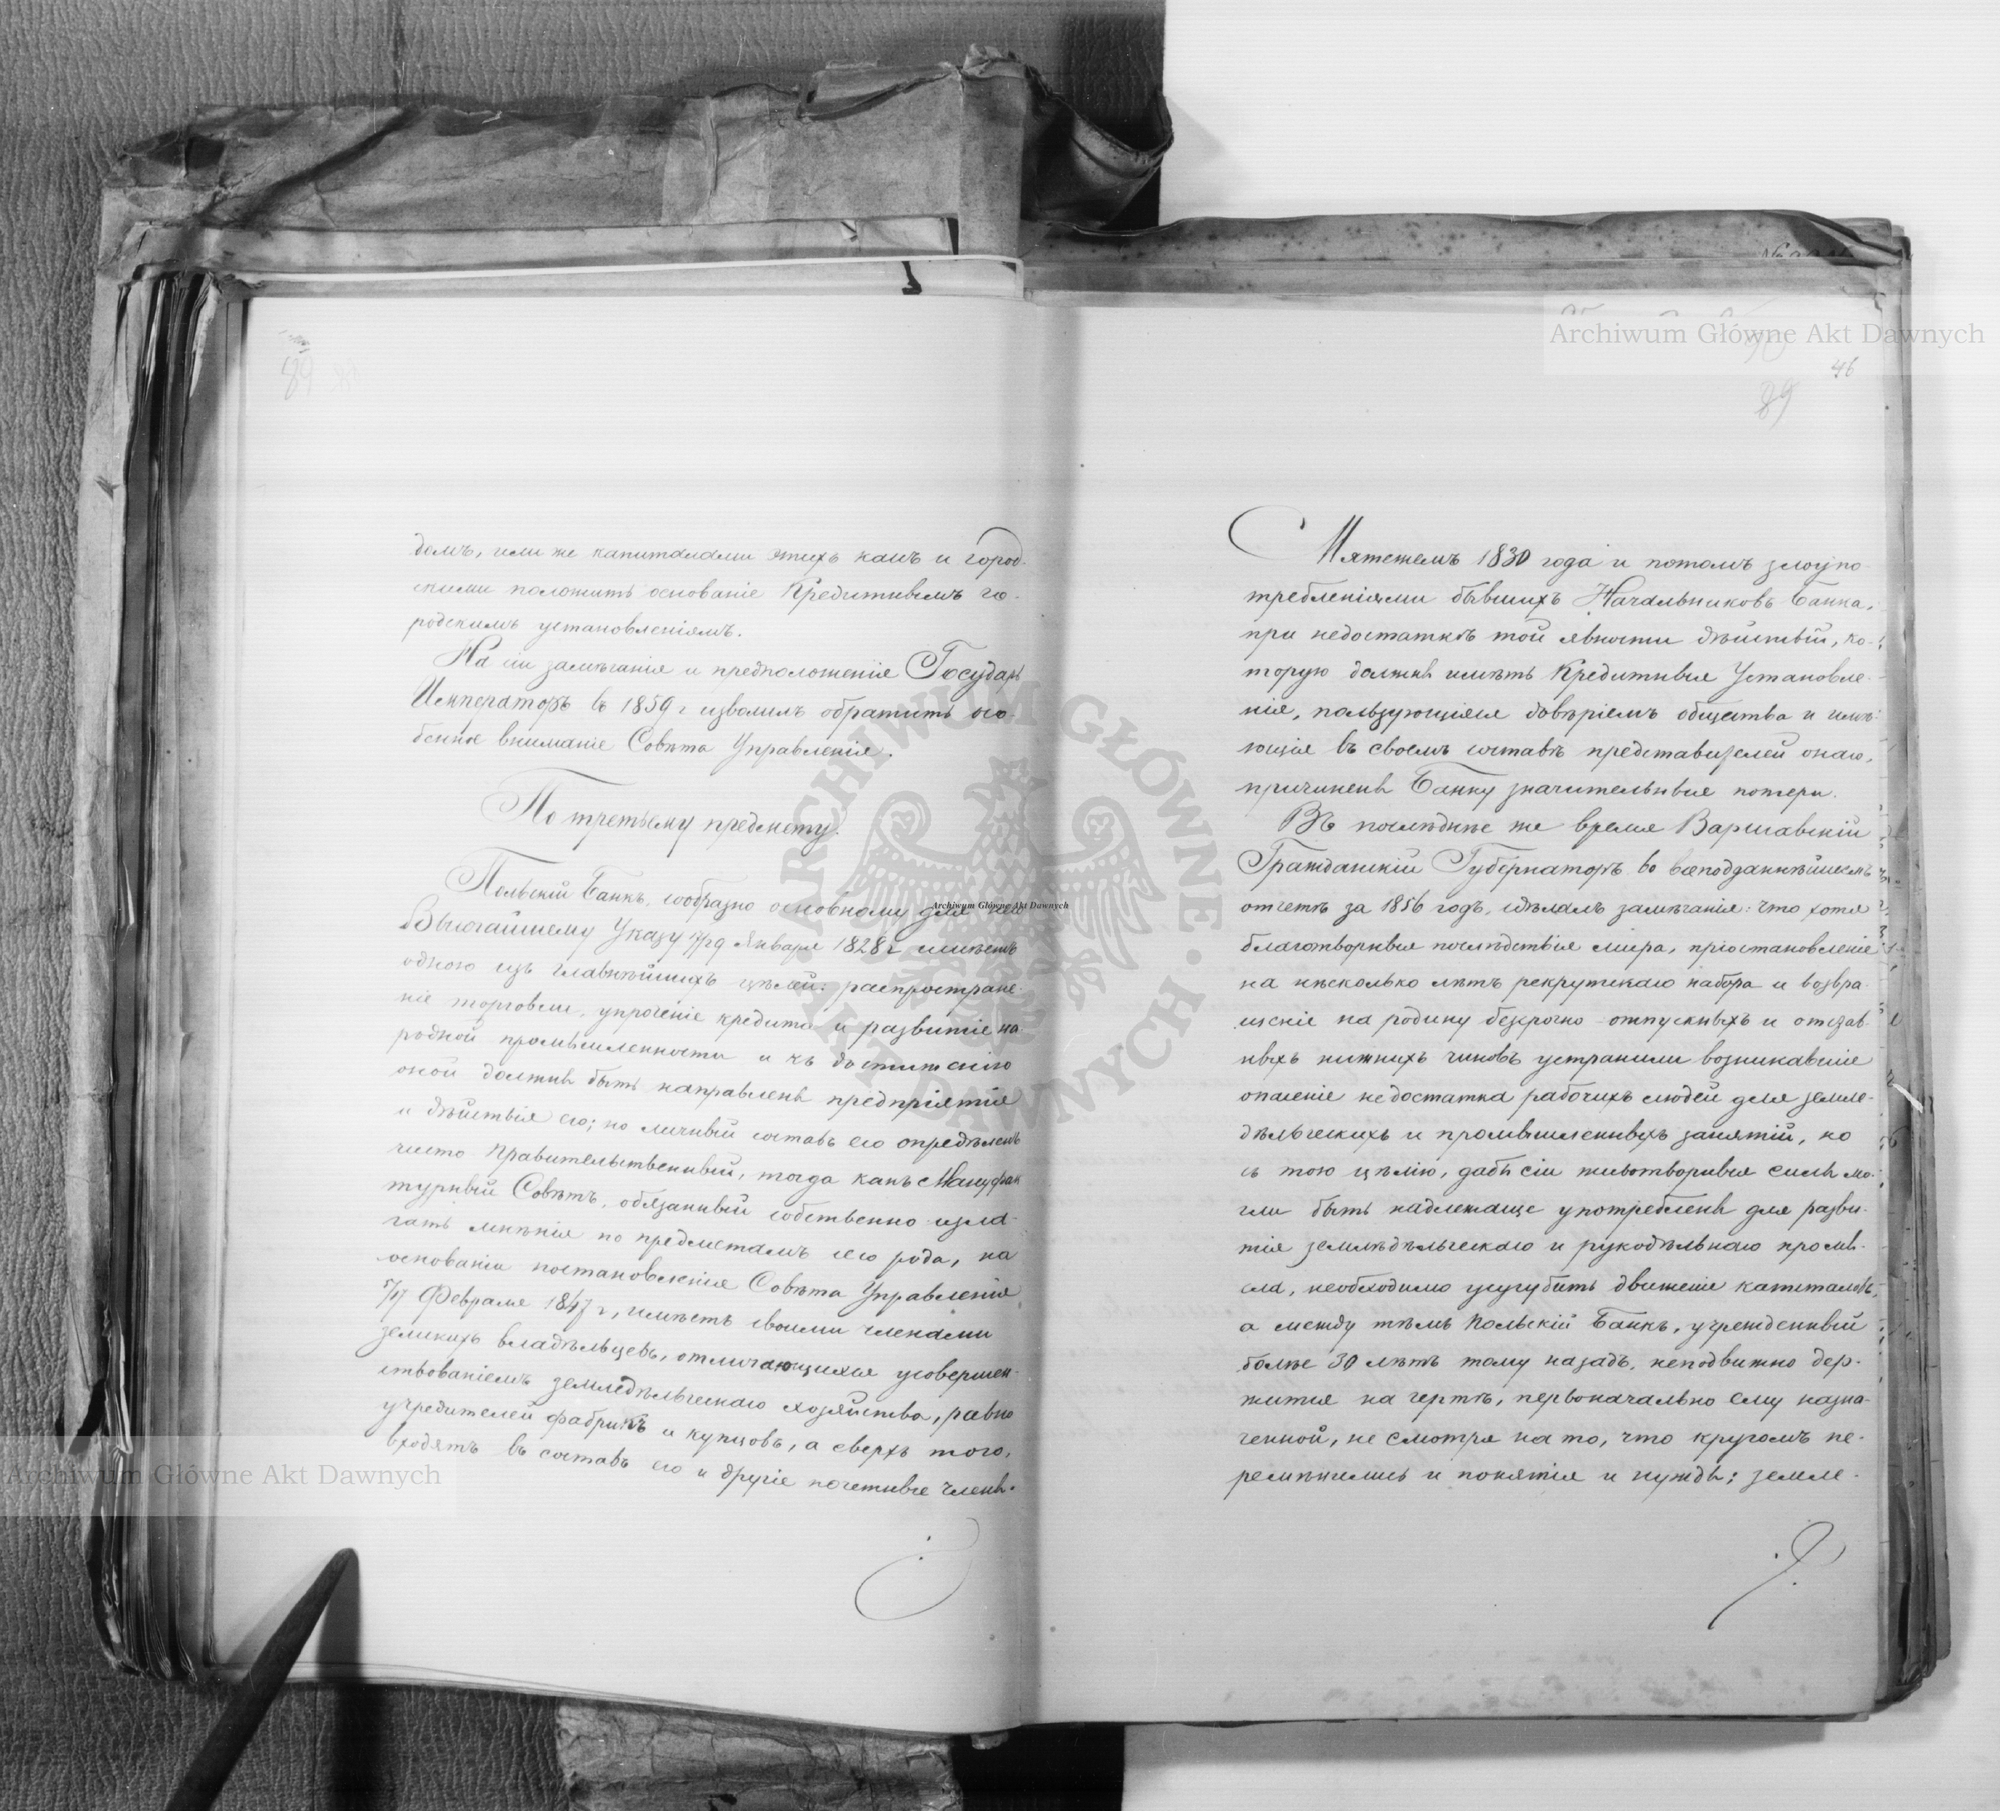 89
домъ, или же капиталами этихъ кассъ и город-
скими положить основаніе Кредитнымъ го-
родскимъ установленіямъ.
На сіи замѣчанія и предположеніе Государь
Императоръ въ 1859 г изволилъ обратить осо-
бенное вниманіе Совѣта Управленія.
По третьему предмету.
Польскій Банкъ, сообразно основному для него
Высочайшему Указу 17/29 Января 1828 г имѣетъ
одною изъ главнѣйшихъ цѣлей: распростране-
ніе торговли, упроченіе кредита и развитіе на-
родной промышленности и къ достиженію
оной должны быть направлены предпріятія
и дѣйствія его; но личный составъ его опредѣленъ
чисто Правительственный, тогда какъ Мануфак
турный Совѣтъ, обязанный собственно изла-
гать мнѣнія по предметамъ сего рода, на
основаніи постановленія Совѣта Управленія
5/17 Февраля 1847 г, имѣетъ своими членами
земскихъ владѣльцевъ, отличающихся усовершен-
ствованіемъ земледѣльческаго хозяйства, равно
учредителей фабрикъ и купцовъ, а сверхъ того,
входятъ въ составъ его и другіе почетные члены.
Archiwum Główne Akt Dawnych
46
89
Мятежемъ 1830 года и потомъ злоупо
требленіями бывшихъ Начальниковъ Банка,
при недостаткѣ той явности дѣйствій, ко-
торую должны имѣть Кредитныя Установле-
нія, пользующіяся довѣріемъ общества и имѣ-
ющія въ своемъ составѣ представителей онаго,
причинены Банку значительныя потери.
Въ послѣднее же время Варшавскій
Гражданскій Губернаторъ во всеподданнѣйшемъ
отчетѣ за 1856 годъ, сдѣлалъ замѣчанія: что хотя
благотворныя послѣдствія мира, пріостановленіе
на нѣсколько лѣтъ рекрутскаго набора и возвра-
щеніе на родину безсрочно-отпускныхъ и отстав-
ныхъ нижнихъ чиновъ устранили возникавшіе
опасеніе недостатка рабочихъ людей для земле-
дѣльческихъ и промышленныхъ занятій, но
съ тою цѣлію, дабы сіи животворныя силы мо-
гли быть надлежаще употреблены для разви-
тія земледѣльческаго и рукодѣльнаго промы-
сла, необходимо усугубить движеніе капиталовъ,
а между тѣмъ Польскій Банкъ, учрежденный
болѣе 30 лѣтъ тому назадъ, неподвижно дер-
жится на чертѣ, первоначально ему назна-
ченной, не смотря на то, что кругомъ пе-
ремѣнились и понятія и нужды; земле-
Archiwum Główne Akt Dawnych
ARCHIWUM GŁÓWNE AKT DAWNYCH
Archiwum Główne Akt Dawnych